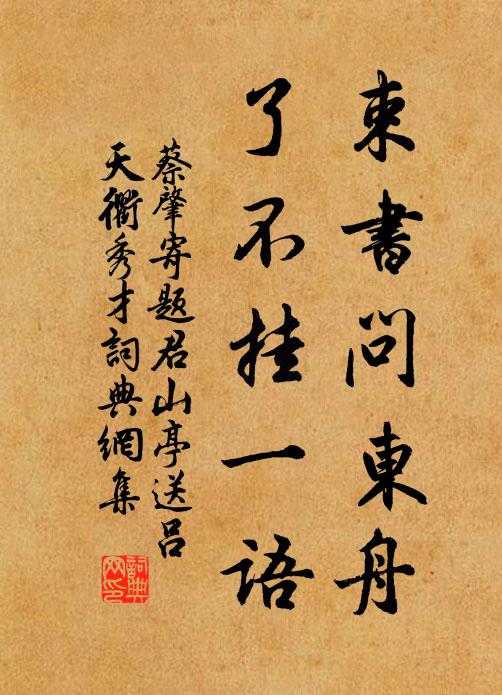 束書問東舟
了不挂一語
蔡肇寄題君山亭送呂
天衢秀才詞典網集
詞典
网印